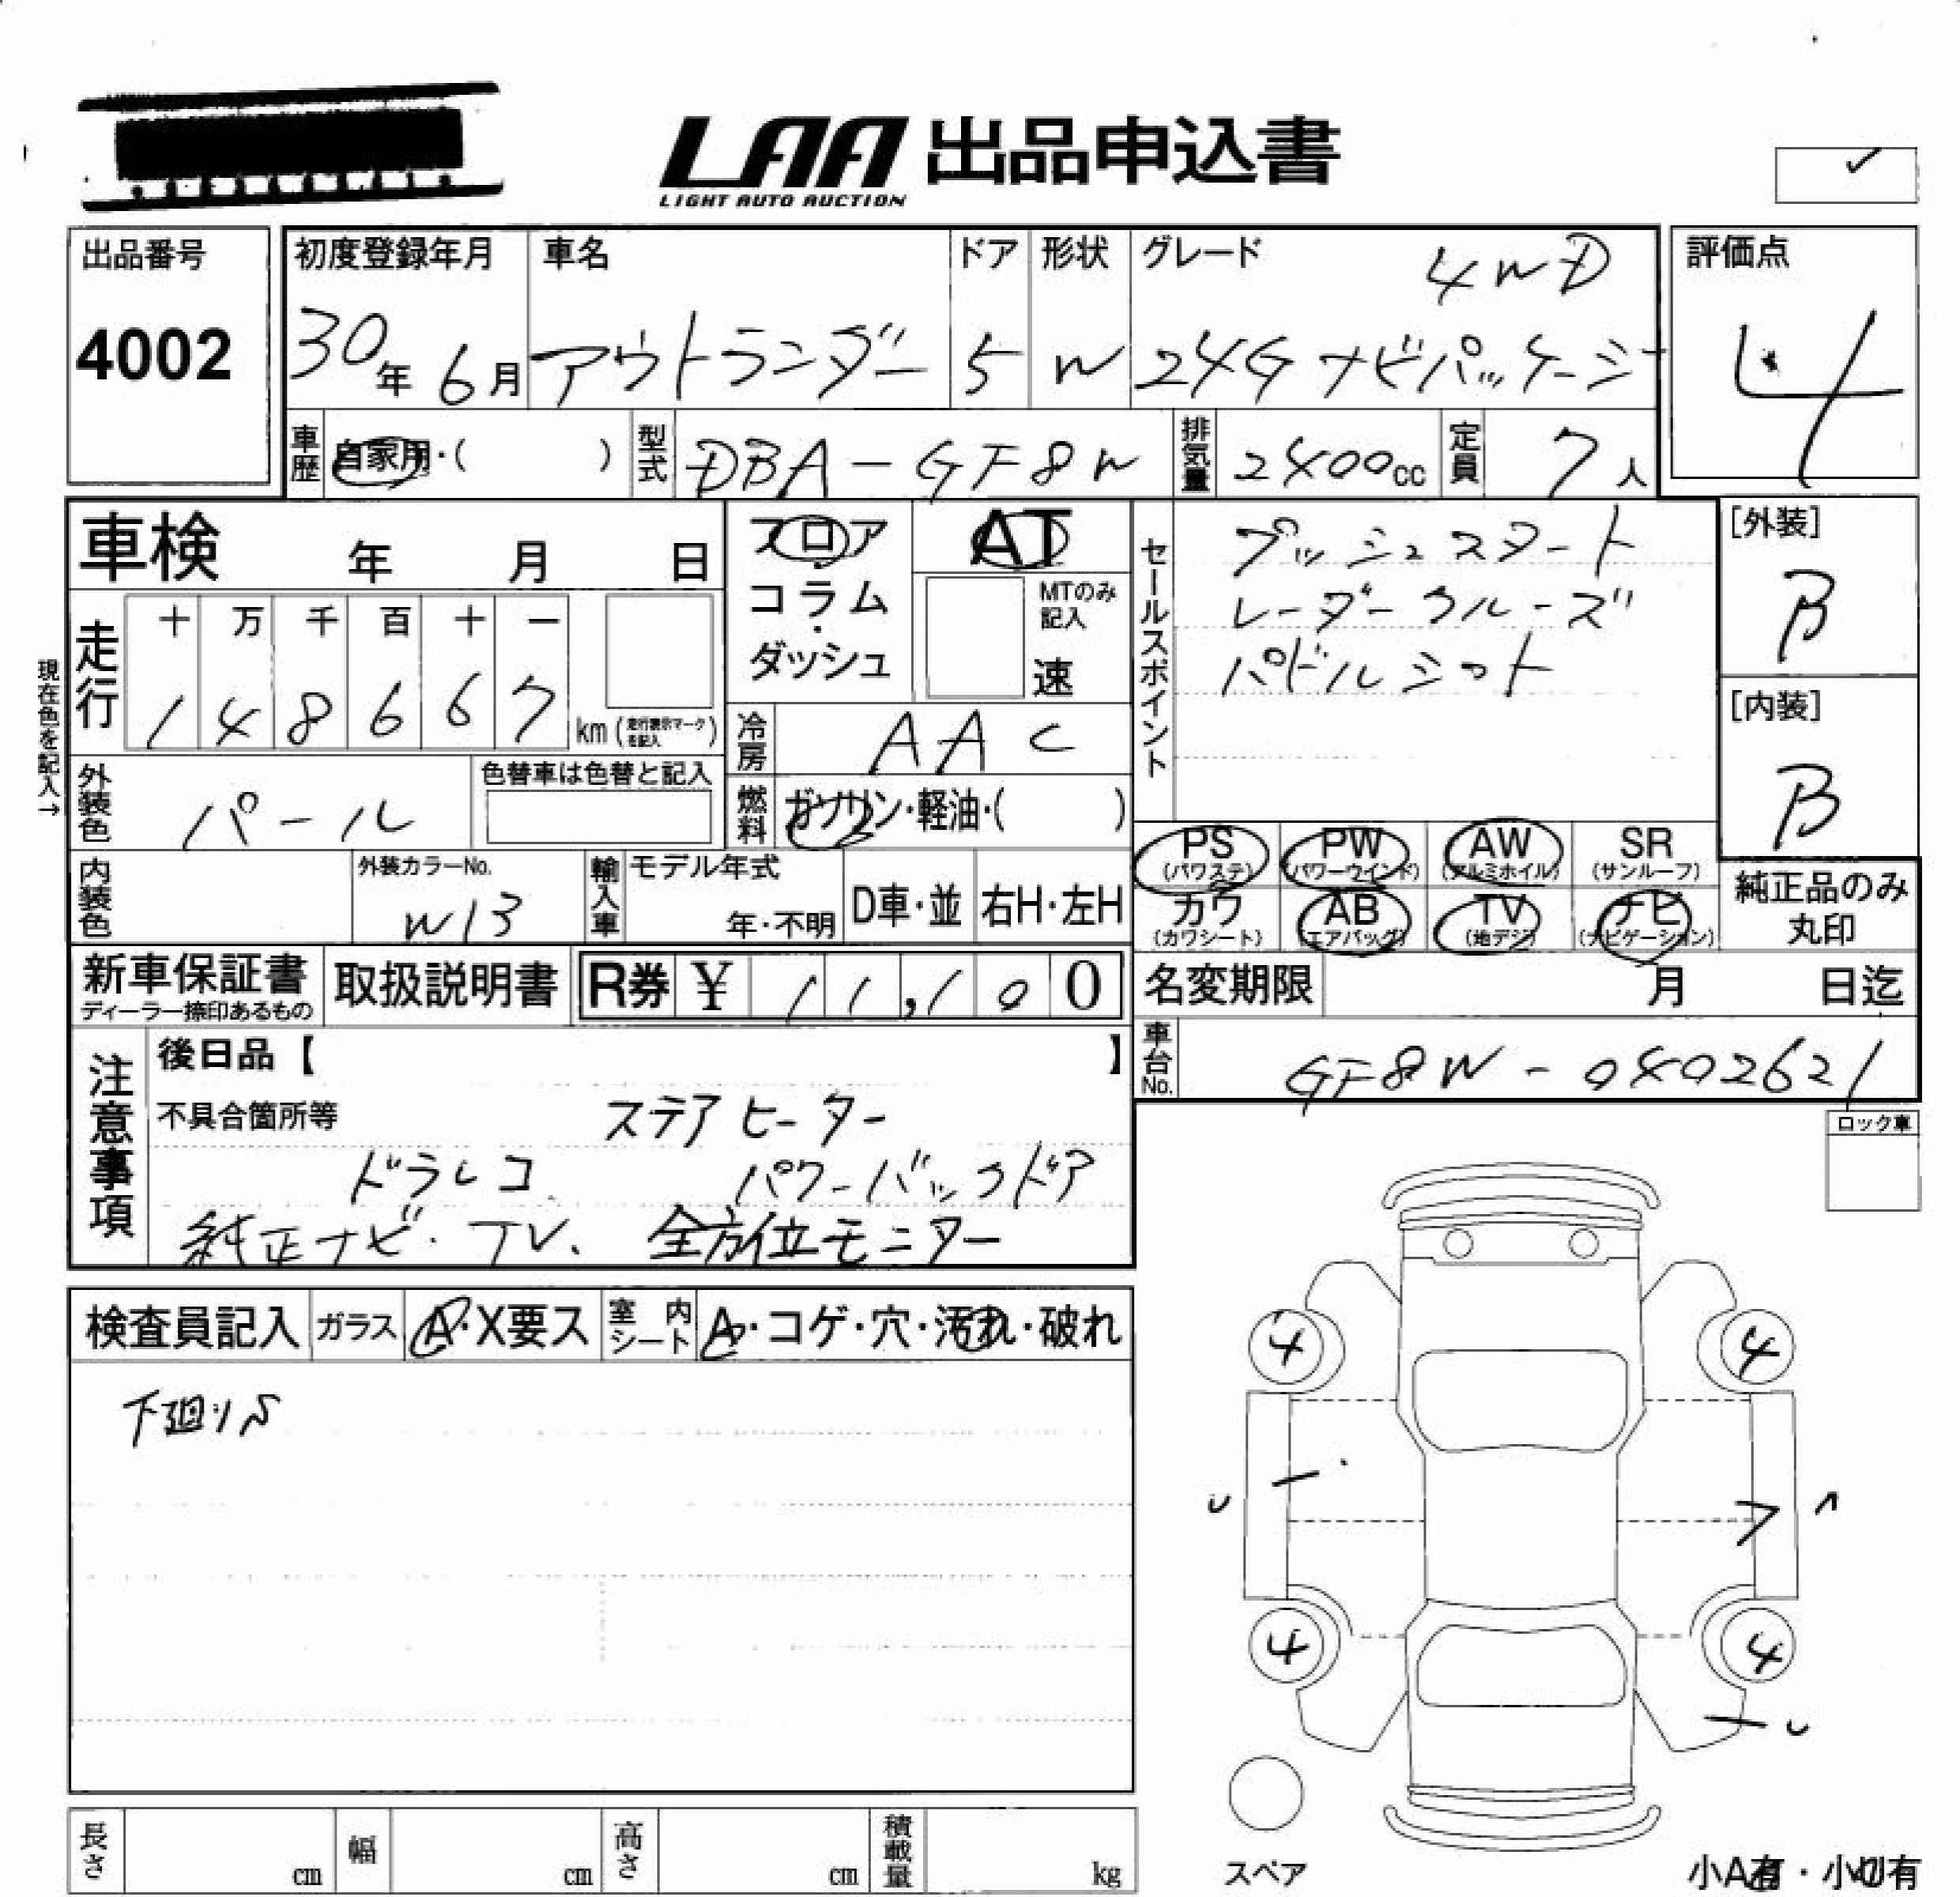 LAA 出品申込書
LIGHT AUTO AUCTION
出品番号
4002
初度登録年月
30年 6月
車名
アウトランダー
ドア
5
形状
W
グレード
4WD
24G ナビパッケージ
評価点
4
車歴 自家用・( )
型式 DBA-GF8W
排気量 2400cc
定員 7人
車検 年 月 日
フロア
コラム・
ダッシュ
AT
MTのみ記入
速
セールスポイント
プッシュスタート
レーダークルーズ
パドルシフト
[外装]
B
[内装]
B
現在色を記入→
走行
十 万 千 百 十 一
1 4 8 6 6 7 km (走行表示マークを記入)
冷房 AAC
外装色 パール
色替車は色替と記入
燃料 ガソリン・軽油・( )
PS (パワステ)
PW (パワーウインド)
AW (アルミホイル)
SR (サンルーフ)
カワ (カワシート)
AB (エアバッグ)
TV (地デジ)
ナビ (ナビゲーション)
純正品のみ
丸印
内装色
外装カラーNo.
W13
輸入車
モデル年式
年・不明
D車・並
右H・左H
新車保証書
ディーラー捺印あるもの
取扱説明書
R券 ¥ 11,100
名変期限 月 日迄
車台No. GF8W-0402621
注意事項
後日品【 】
不具合箇所等 ステアヒーター
ドラレコ パワーバックドア
純正ナビ・TV、全方位モニター
ロック車
検査員記入
ガラス A・X要ス
室内シート A・コゲ・穴・汚れ・破れ
下廻りS
4 4
4 4
スペア
小A有・小U有
長さ cm
幅 cm
高さ cm
積載量 kg